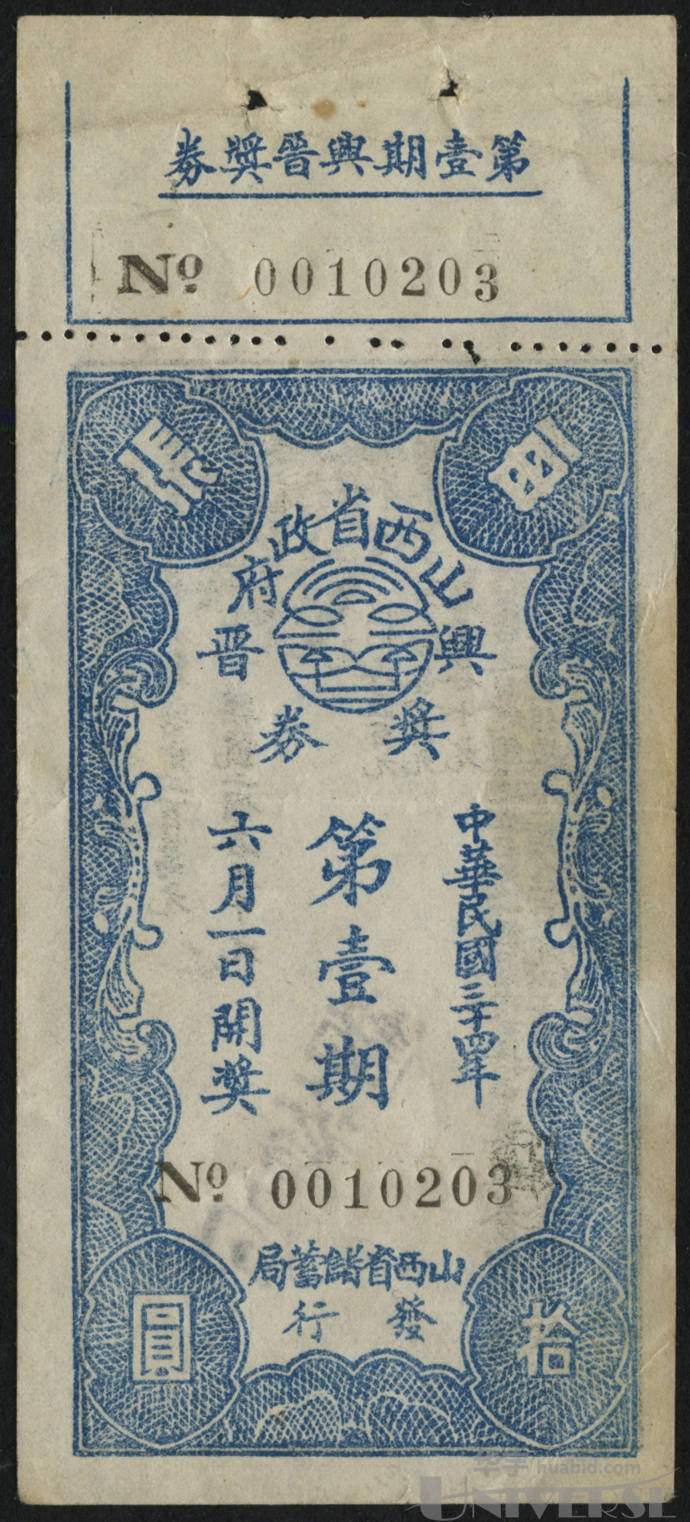 第壹期興晉獎券
Nº 0010203
每張
山西省政府
興晉
獎券
中華民國三十四年
第壹期
六月一日開獎
Nº 0010203
山西省儲蓄局
發行
拾圓
华宇 huabid.com
UNIVERSE